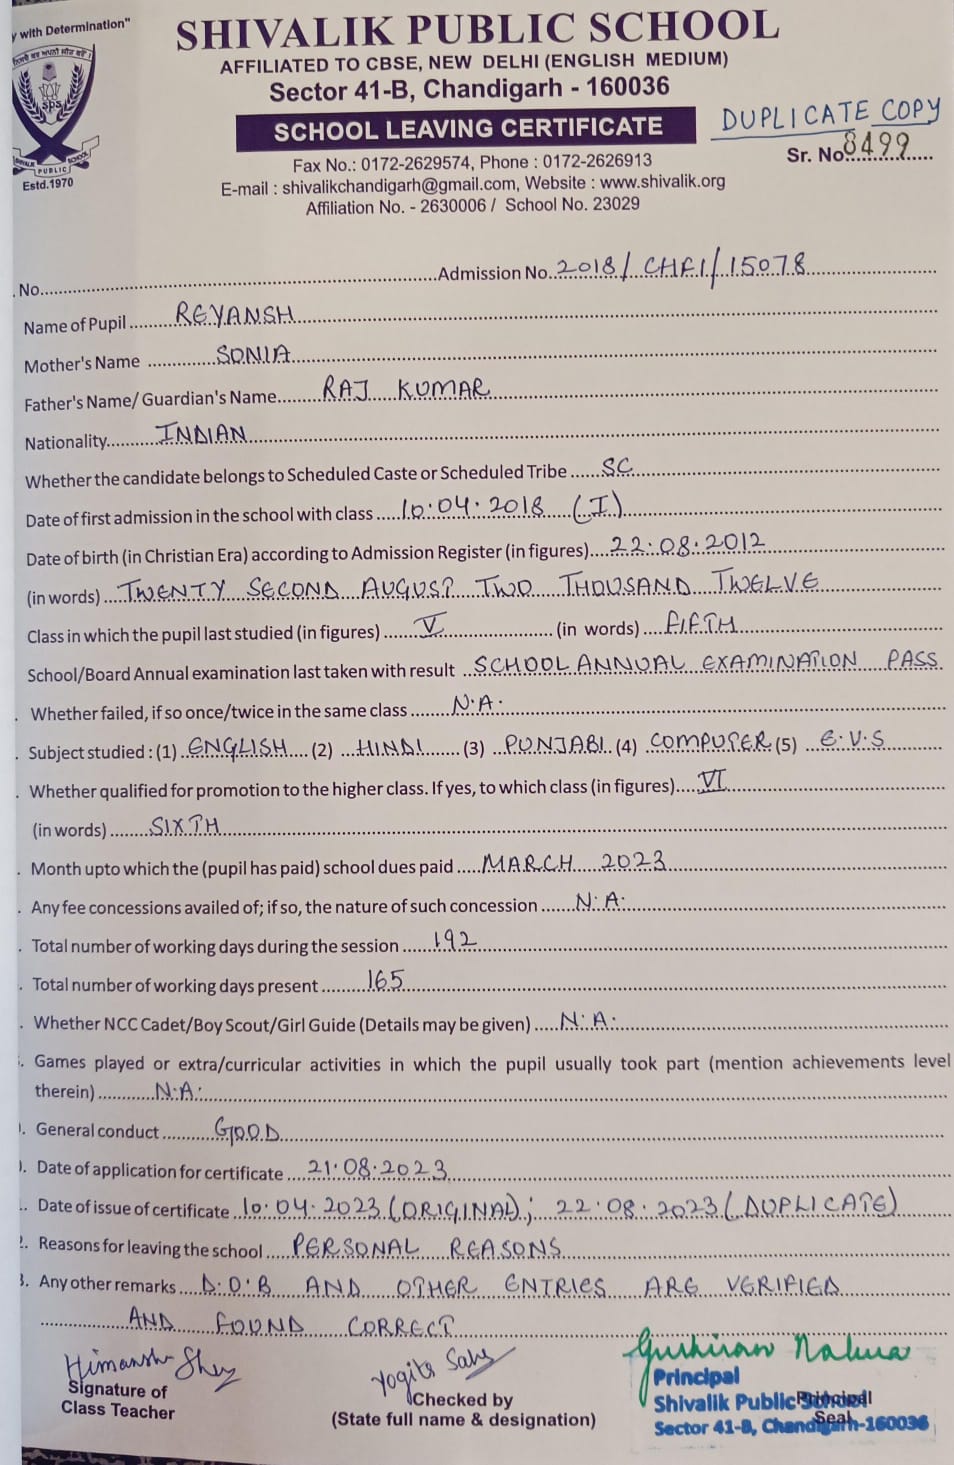 y with Determination"
SHIVALIK PUBLIC SCHOOL
AFFILIATED TO CBSE, NEW DELHI (ENGLISH MEDIUM)
Sector 41-B, Chandigarh - 160036
SCHOOL LEAVING CERTIFICATE
DUPLICATE COPY
Sr. No. 8499
sps
SHIVALIK PUBLIC SCHOOL
Estd.1970
Fax No.: 0172-2629574, Phone : 0172-2626913
E-mail : shivalikchandigarh@gmail.com, Website : www.shivalik.org
Affiliation No. - 2630006 / School No. 23029
. No. Admission No. 2018/CHFI/15078
Name of Pupil REYANSH
Mother's Name SONIA
Father's Name/ Guardian's Name RAJ KUMAR
Nationality INDIAN
Whether the candidate belongs to Scheduled Caste or Scheduled Tribe SC
Date of first admission in the school with class 10.04.2018 (I)
Date of birth (in Christian Era) according to Admission Register (in figures) 22.08.2012
(in words) TWENTY SECOND AUGUST TWO THOUSAND TWELVE
Class in which the pupil last studied (in figures) V (in words) FIFTH
School/Board Annual examination last taken with result SCHOOL ANNUAL EXAMINATION PASS
. Whether failed, if so once/twice in the same class N.A.
. Subject studied : (1) ENGLISH (2) HINDI (3) PUNJABI (4) COMPUTER (5) E.V.S
. Whether qualified for promotion to the higher class. If yes, to which class (in figures) VI
(in words) SIXTH
. Month upto which the (pupil has paid) school dues paid MARCH 2023
. Any fee concessions availed of; if so, the nature of such concession N.A.
. Total number of working days during the session 192
. Total number of working days present 165
. Whether NCC Cadet/Boy Scout/Girl Guide (Details may be given) N.A.
. Games played or extra/curricular activities in which the pupil usually took part (mention achievements level
therein) N.A.
. General conduct GOOD
. Date of application for certificate 21.08.2023
. Date of issue of certificate 10.04.2023 (ORIGINAL); 22.08.2023 (DUPLICATE)
2. Reasons for leaving the school PERSONAL REASONS
3. Any other remarks D.O.B AND OTHER ENTRIES ARE VERIFIED
AND FOUND CORRECT
Signature of
Class Teacher
Checked by
(State full name & designation)
Principal
Seal
Principal
Shivalik Public School
Sector 41-B, Chandigarh-160036